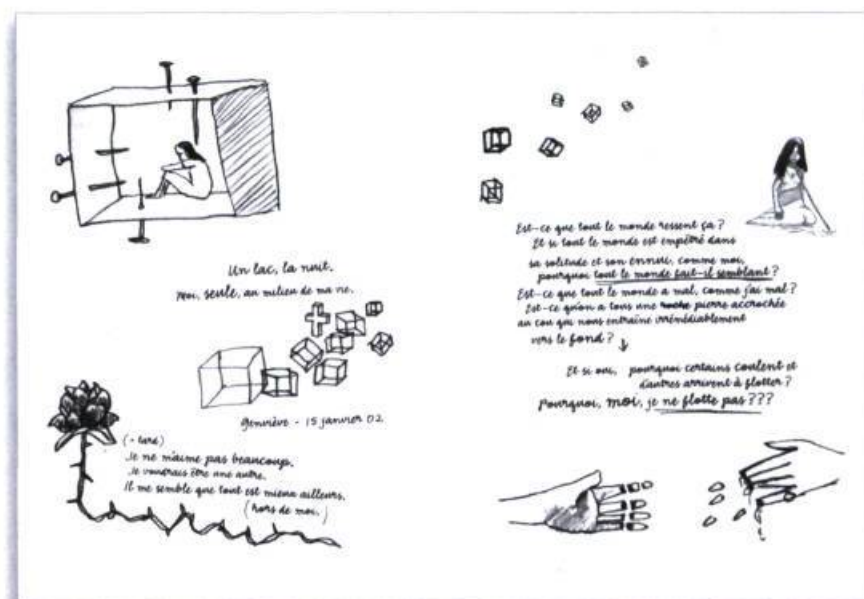 Un lac, la nuit.
Moi, seule, au milieu de ma vie.
Geneviève - 15 janvier 02
(+ tard)
Je ne m'aime pas beaucoup.
Je voudrais être une autre.
Il me semble que tout est mieux ailleurs.
(hors de moi.)
Est-ce que tout le monde ressent ça ?
Et si tout le monde est empêtré dans
sa solitude et son ennui, comme moi,
pourquoi tout le monde fait-il semblant ?
Est-ce que tout le monde a mal, comme j'ai mal ?
Est-ce qu'on a tous une roche pierre accrochée
au cou qui nous entraîne irrémédiablement
vers le fond ? ↓
Et si oui, pourquoi certains coulent et
d'autres arrivent à flotter ?
Pourquoi, moi, je ne flotte pas ???